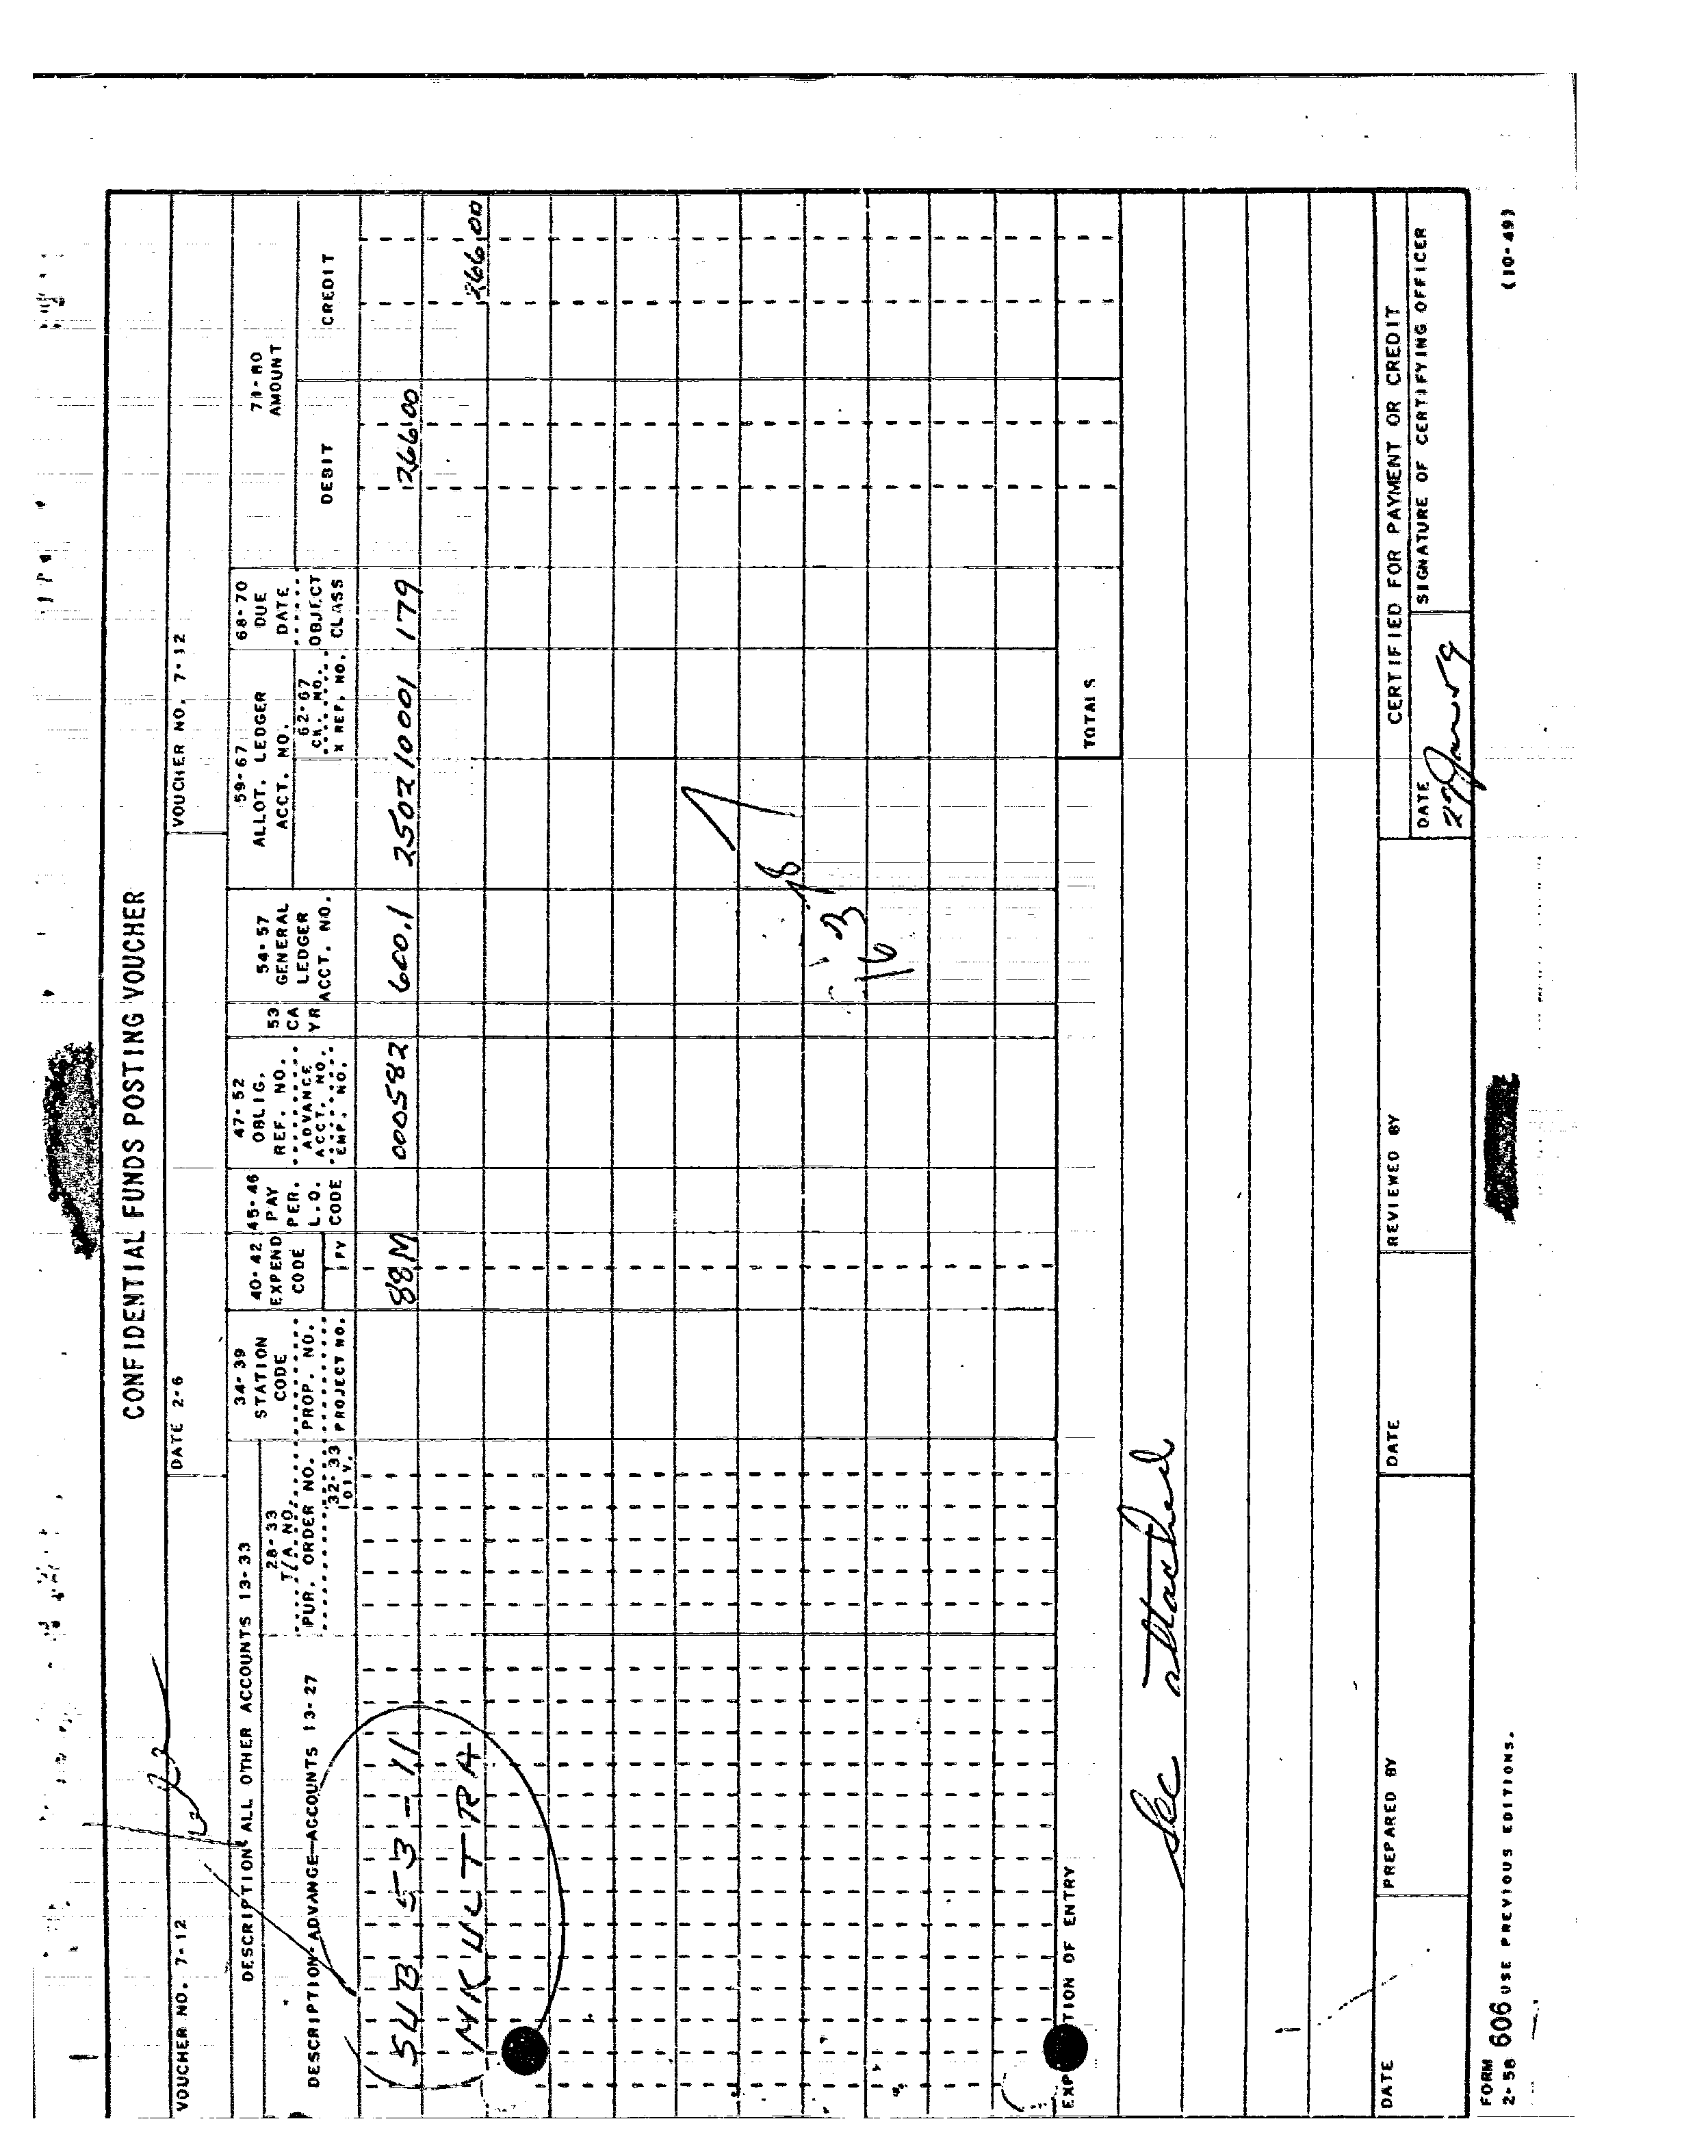 CONFIDENTIAL FUNDS POSTING VOUCHER
VOUCHER NO. 7-12
DATE 2-6
VOUCHER NO. 7-12
DESCRIPTION-ALL OTHER ACCOUNTS 13-33
DESCRIPTION-ADVANCE-ACCOUNTS 13-27
28-33
T/A NO.
PUR. ORDER NO.
32-33
DIV.
34-39
STATION
CODE
PROP. NO.
PROJECT NO.
40-42
EXPEND
CODE
FY
45-46
PAY
PER.
L.O.
CODE
47-52
OBLIG.
REF. NO.
ADVANCE
ACCT. NO.
EMP. NO.
53
CA
YR
54-57
GENERAL
LEDGER
ACCT. NO.
59-67
ALLOT. LEDGER
ACCT. NO.
62-67
CK. NO.
X REF. NO.
68-70
DUE
DATE
OBJECT
CLASS
71-80
AMOUNT
DEBIT
CREDIT
SUB 53-11 88M 000582 600.1 250210001 179 266.00
MKULTRA 266.00
TOTALS
EXP TION OF ENTRY
See attached
DATE
PREPARED BY
DATE
REVIEWED BY
CERTIFIED FOR PAYMENT OR CREDIT
DATE
SIGNATURE OF CERTIFYING OFFICER
27 Jan 59
FORM
2-58 606 USE PREVIOUS EDITIONS.
(10-49)